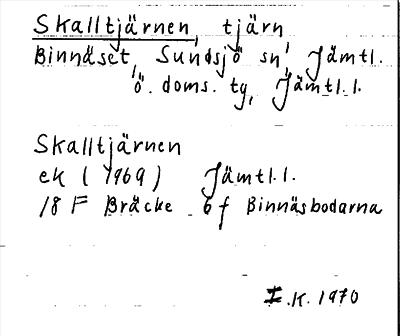 Skalltjärnen, tjärn
Binnäset, Sundsjö sn, Jämtl.
ö. doms. tg, Jämtl.l.
Skalltjärnen
ek (1969) Jämtl.l.
18 F Bräcke 6 f Binnäsbodarna
I.K. 1970